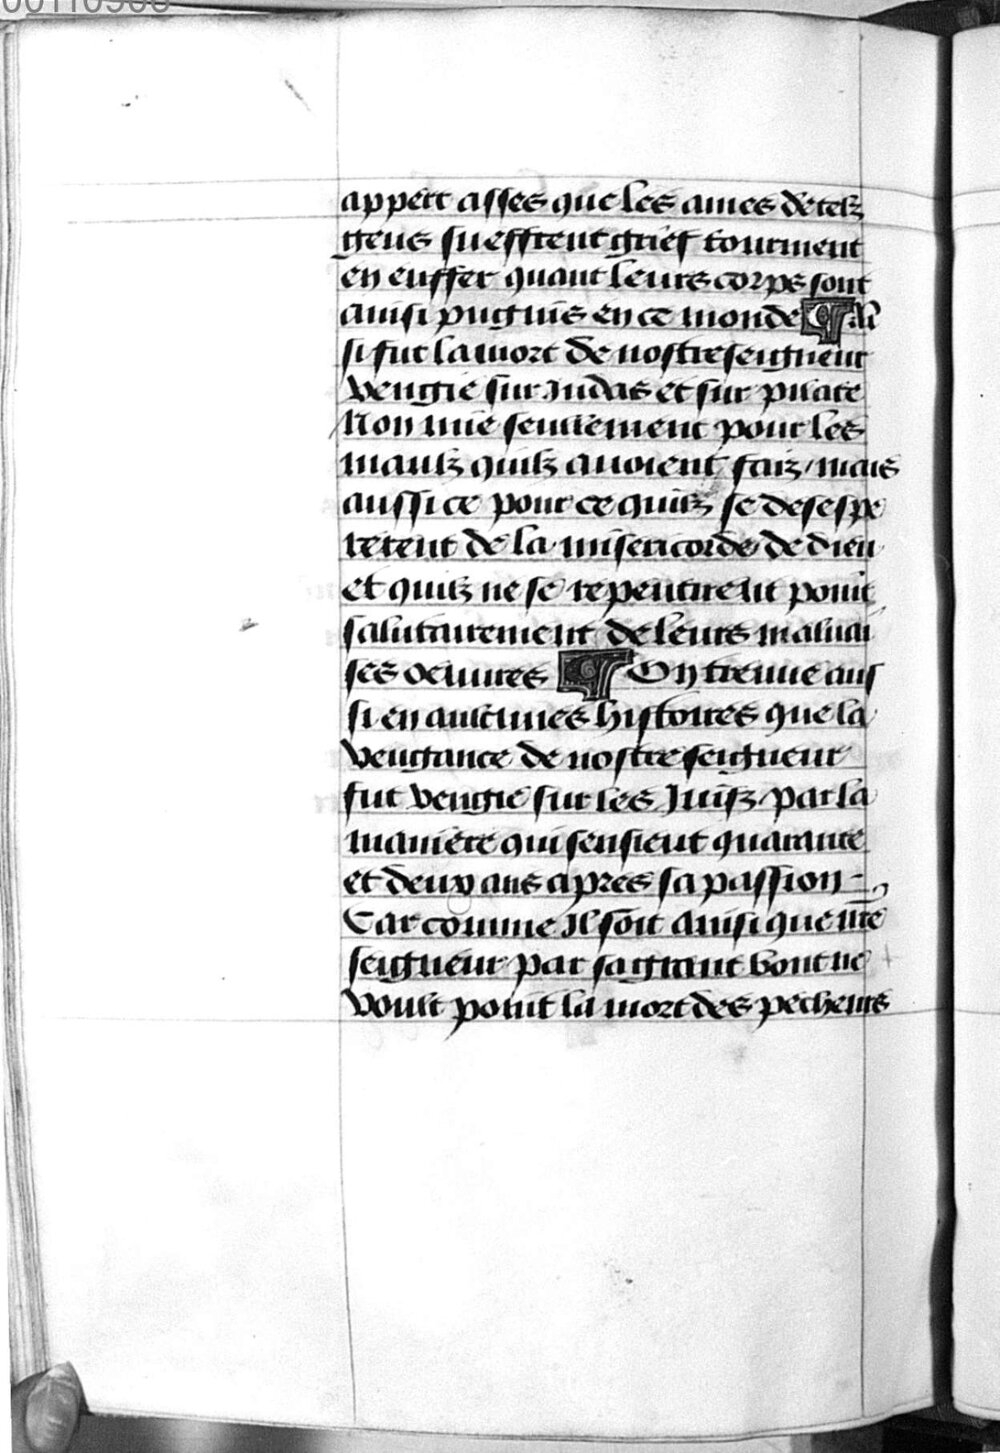 appert asses que les ames de telz
gens sueffrent grief tourment
en enffer quant leurs corps sont
ainsi pugnis en ce monde ¶ Ai
si fut la mort de nostre seigneur
vengie sur Iudas et sur pilate
Non mie seullement pour les
maulz quilz auoient faiz / mais
aussi ce pour ce quilz se desespe
rerent de la misericorde de dieu
et quilz ne se repentirent point
salutairement de leurs maluai
ses oeuures ¶ On treuue aus
si en aulcunes histoires que la
vengance de nostre seigneur
fut vengie sur les Juifz par la
maniere qui sensieut quarante
et deux ans apres sa passion -
Car comme Il soit ainsi que nr̄e
seigneur par sa grant bonte ne
voult point la mort des pecheurs